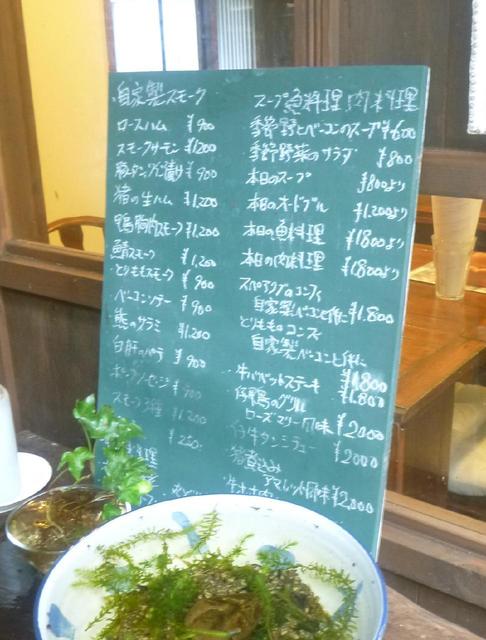 自家製スモーク
ロースハム ¥900
スモークサーモン ¥1200
豚タン ¥900
猪の生ハム ¥1,200
鴨胸肉スモーク ¥1,200
鯖スモーク ¥1,200
とりももスモーク ¥900
ベーコンソテー ¥900
熊のサラミ ¥1,200
白肝の ¥900
¥900
スモーク3種 ¥1,200
¥250
料理
スープ魚料理 肉料理
季節野とベーコンのスープ ¥600
季節野菜のサラダ ¥800
本日のスープ ¥800より
本日のオードブル ¥1,200より
本日の魚料理 ¥1800より
本日の肉料理 ¥1800より
スペアリブのコンフィ
自家製ベーコンと ¥1.800
とりもものコンフィ
自家製ベーコンと
¥1800
牛ハバットステーキ ¥1,800
のグリル
ローズマリー風味 ¥2,000
牛タンシチュー ¥2000
煮込み
風味 ¥2,000